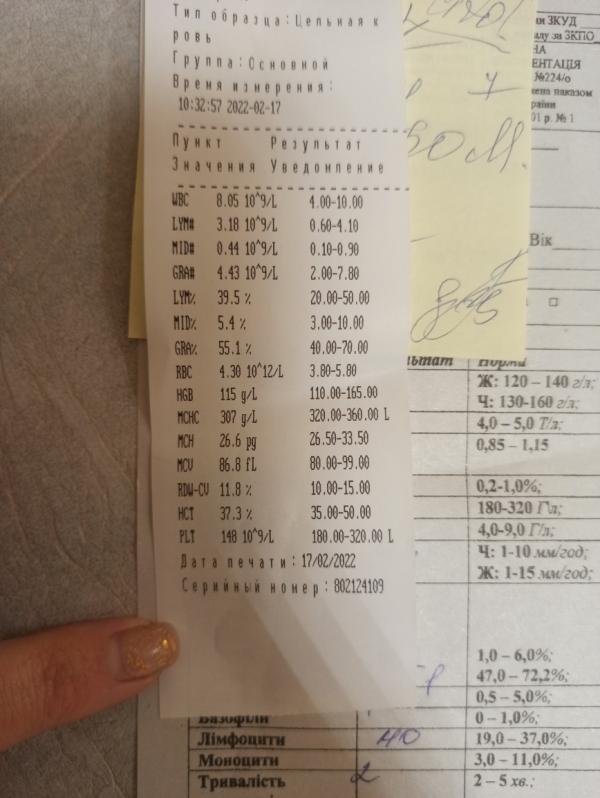 Тип образца:Цельная к
ровь
Группа:Основной
Время измерения:
10:32:57 2022-02-17
Пункт Результат
Значения Уведомление
WBC 8.05 10^9/L 4.00-10.00
LYM# 3.18 10^9/L 0.60-4.10
MID# 0.44 10^9/L 0.10-0.90
GRA# 4.43 10^9/L 2.00-7.80
LYM% 39.5 % 20.00-50.00
MID% 5.4 % 3.00-10.00
GRA% 55.1 % 40.00-70.00
RBC 4.30 10^12/L 3.80-5.80
HGB 115 g/L 110.00-165.00
MCHC 307 g/L 320.00-360.00 L
MCH 26.6 pg 26.50-33.50
MCV 86.8 fL 80.00-99.00
RDW-CV 11.8 % 10.00-15.00
HCT 37.3 % 35.00-50.00
PLT 148 10^9/L 180.00-320.00 L
Дата печати:17/02/2022
Серийный номер:802124109
7
50 м.
ЗКУД
за ЗКПО
НА
ЕНТАЦІЯ
№224/о
наказом
раїни
01 р. № 1
Вік
Норми
Ж: 120 – 140 г/л;
Ч: 130-160 г/л;
4,0 – 5,0 Т/л;
0,85 – 1,15
0,2-1,0%;
180-320 Г\л;
4,0-9,0 Г/л;
Ч: 1-10 мм/год;
Ж: 1-15 мм/год;
1,0 – 6,0%;
47,0 – 72,2%;
0,5 – 5,0%;
Базофіли 0 – 1,0%;
Лімфоцити 40 19,0 – 37,0%;
Моноцити 3,0 – 11,0%;
Тривалість 2 2 – 5 хв.;